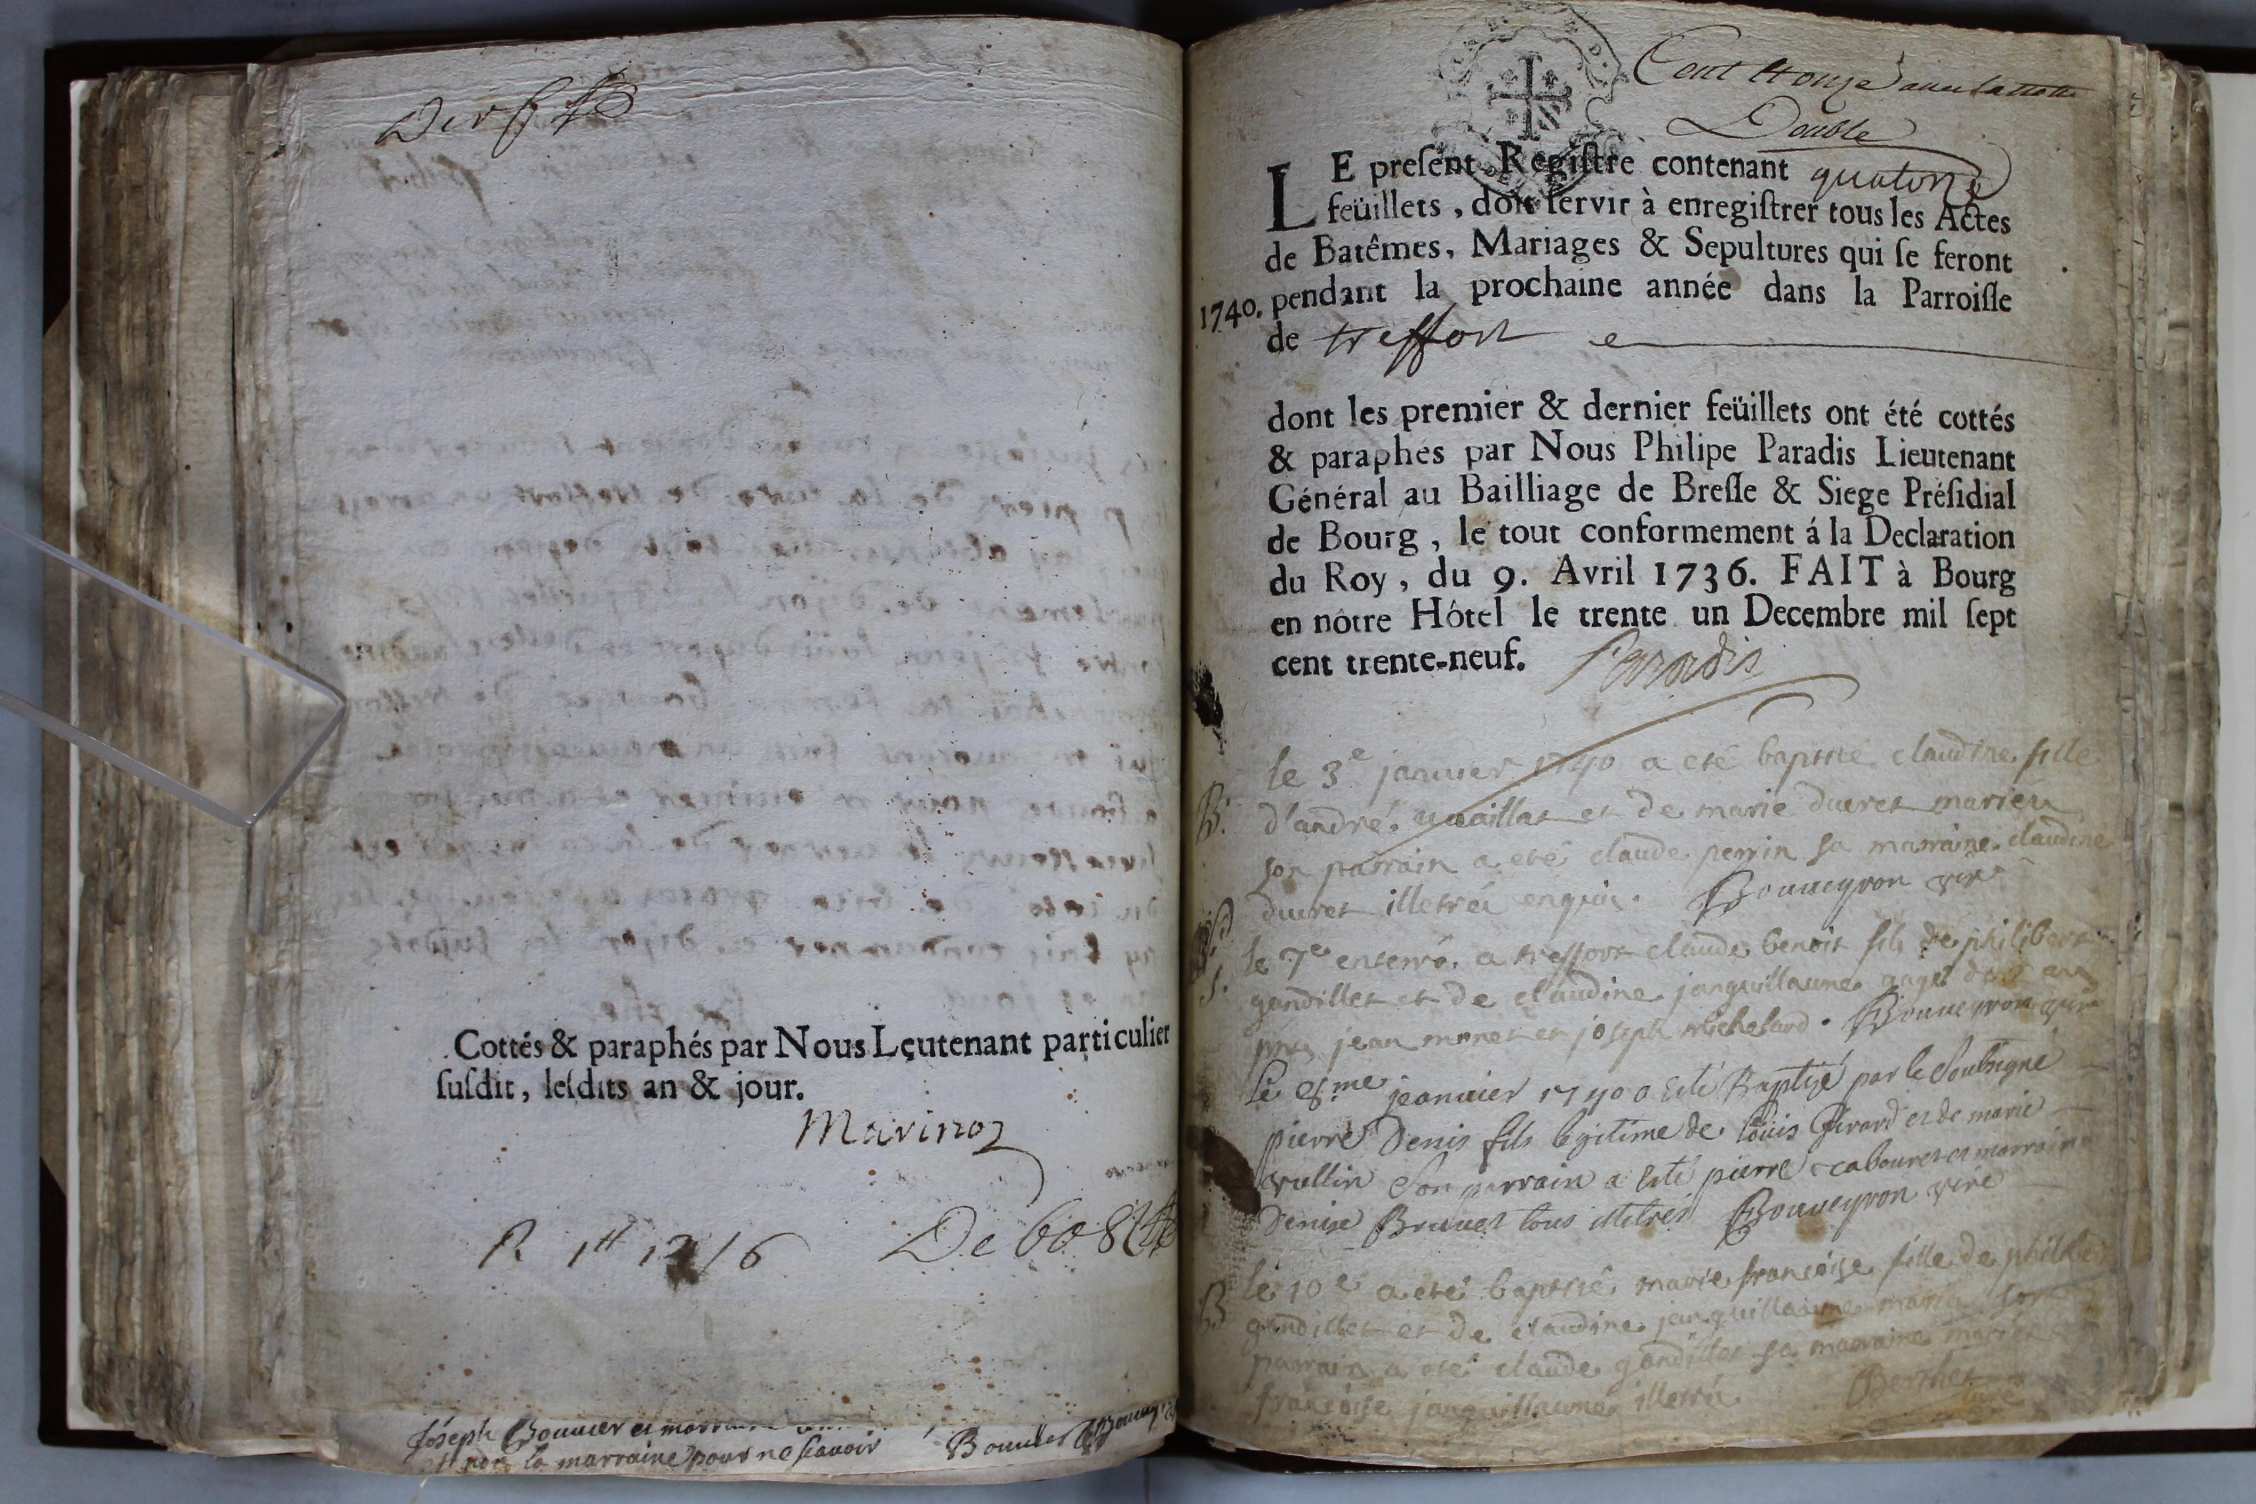 Cottés & paraphés par Nous Lçutenant particulier
susdit, lesdits an & jour.
Marinoz
De 608
Joseph Bouvier et marraine
non la marraine pour ne scavoir
Double
LE present Registre contenant quatorze
feüillets, doit servir à enregistrer tous les Actes
de Batêmes, Mariages & Sepultures qui se feront
1740. pendant la prochaine année dans la Parroisse
de treffort
dont les premier & dernier feüillets ont été cottés
& paraphés par Nous Philipe Paradis Lieutenant
Général au Bailliage de Bresse & Siege Présidial
de Bourg, le tout conformement á la Declaration
du Roy, du 9. Avril 1736. FAIT à Bourg
en nôtre Hôtel le trente un Decembre mil sept
cent trente-neuf. Paradis
le 3e janvier 1740 a eté baptisé claudine fille
B. d'andré vuaillat et de marie ducret mariéz
son parrain a eté claude perrin sa marraine claudine
ducret illetréz enquis. Bouveyron vire
le 7e enterré a treffort claude benoit fils de philibert
S. gandillet et de claudine janguillaume
jean monet et joseph Bouveyron vire
le 8me jeanvier 1740 a Esté Baptizé par le Soubsigne
pierre Denis fils legitime de louis Girard et de marie
vullin Son parrain a Esté pierre cabouret et marraine
Denise Brunet tous illitrés Bouveyron vire
B le 10e a eté baptisé marie françoise fille de philibert
gandillet et de claudine janguillaume mariéz son
parrain a eté claude gandillet sa marraine marie
françoise janguillaume illetréz Berthet